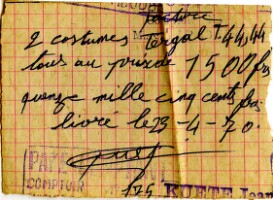 facture
2 costumes Tergal T. 44,44
tous au prix de 15 00 frs
quenze mille cinq cents frs
livré le 23 - 4 - 70.
COMPTOIR
KUETE Jean